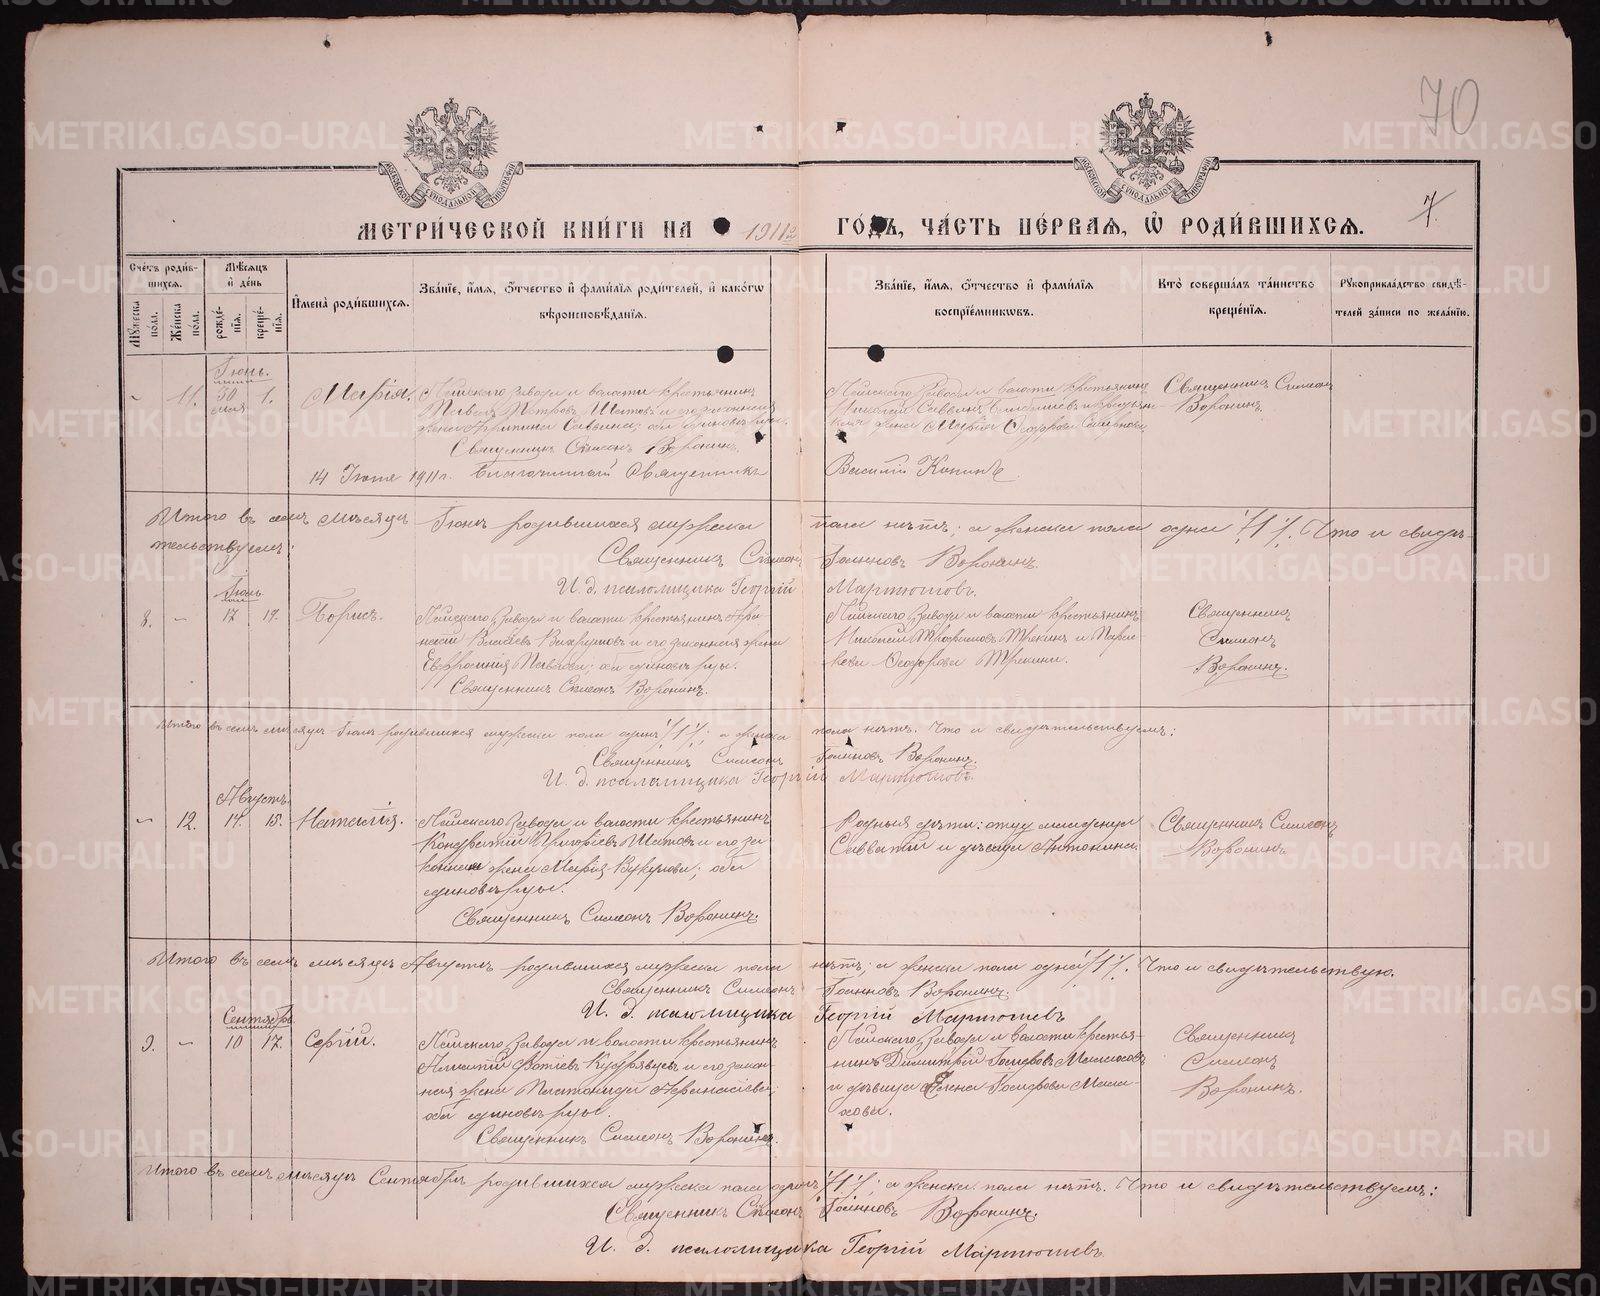 70
МОСКОВСКОЙ СѴНОДАЛЬНОЙ ТИПОГРАФІИ
МОСКОВСКОЙ СѴНОДАЛЬНОЙ ТИПОГРАФІИ
МЕТРИ́ЧЕСКОЙ КНИ́ГИ НА 1911 ГО́ДЪ, ЧА́СТЬ ПЕ́РВАЯ, Ѿ РОДИ́ВШИХСЯ.
7.
Сче́тъ роди́в-
шихся.
Мꙋ́жеска по́ла.
Же́нска по́ла.
Мѣ́сяцъ и҆ де́нь
рожде́нїя.
креще́нїя.
И҆мена̀ роди́вшихся.
Зва́нїе, и҆́мя, ѻ҆́тчество и҆ фами́лїя роди́телей, и҆ како́гѡ
вѣроисповѣ́данїя.
Зва́нїе, и҆́мя, ѻ҆́тчество и҆ фами́лїя
воспрїе́мникѡвъ.
Кто̀ соверша́лъ та́инство
креще́нїя.
Рꙋкоприкла́дство свидѣ́-
телей за́писи по жела́нїю.
Іюнь.
11. 30 мая 1.
Марія.
завода и волости крестьянинъ
Павелъ Петровъ Шатовъ и его законная
жена Саввина; оба единовѣрцы.
Священникъ Симеонъ Воронинъ.
завода и волости крестьянинъ
Николай Саввинъ
жена Марія
Священникъ Симеонъ
Воронинъ.
14 Іюня 1911 г. Благочинный Священникъ Василій Конинъ
Итого въ семъ мѣсяцѣ Іюнѣ родившихся мужеска пола нѣтъ; а женска пола одна /1/. Что и свидѣ-
тельствуемъ:
Священникъ Симеонъ Іоанновъ Воронинъ.
И. д. псаломщика Георгій Мартюшовъ.
Іюль
8. – 17 17.
Борисъ.
завода и волости крестьянинъ Афа-
насій Вахрушовъ и его законная жена
Евфросинія Павлова; оба единовѣрцы.
Священникъ Симеонъ Воронинъ.
завода и волости крестьянинъ
Николай Трофимовъ Трекинъ и Парас-
кева Ѳеодорова Трекина.
Священникъ
Симеонъ
Воронинъ.
Итого въ семъ мѣсяцѣ Іюлѣ родившихся мужеска пола одинъ /1/; а женска пола нѣтъ. Что и свидѣтельствуемъ:
Священникъ Симеонъ Іоанновъ Воронинъ.
И. д. псаломщика Георгій Мартюшовъ.
Августъ
– 12. 14. 15.
Наталія.
завода и волости крестьянинъ
Кондратій Григорьевъ Шатовъ и его за-
конная жена Марія Вукулова; оба
единовѣрцы.
Священникъ Симеонъ Воронинъ.
Родныя дѣти: отца младенца
Савватій и дѣвица Антонина.
Священникъ Симеонъ
Воронинъ.
Итого въ семъ мѣсяцѣ Августѣ родившихся мужеска пола нѣтъ; а женска пола одна /1/. Что и свидѣтельствую.
Священникъ Симеонъ Іоанновъ Воронинъ.
И. д. псаломщика Георгій Мартюшевъ
Сентябрь
9. – 10 17.
Сергій.
завода и волости крестьянинъ
Фотіевъ Кудрявцевъ и его закон-
ная жена Платонида Афанасіева;
оба единовѣрцы.
Священникъ Симеонъ Воронинъ.
завода и волости крестья-
нинъ Димитрій Іосифовъ
и дѣвица Елена Іосифова
Священникъ
Симеонъ
Воронинъ.
Итого въ семъ мѣсяцѣ Сентябрѣ родившихся мужеска пола одинъ /1/; а женска пола нѣтъ. Что и свидѣтельствуемъ:
Священникъ Симеонъ Іоанновъ Воронинъ.
И. д. псаломщика Георгій Мартюшевъ.
METRIKI.GASO-URAL.RU